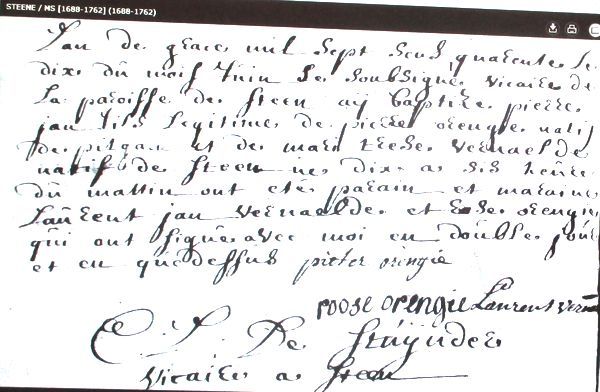 STEENE / MS [1688-1762] (1688-1762)
L'an de grace mil sept cens quarente le
dix du mois Juin Je soubsigné vicaire de
la paroisse de steen aÿ baptize pierre
jan fils legitime de pierre orengie natif
de pitgam et de marie therese vernaelde
natif de steen ne dix a six heure
du mattin ont ete parain et maraine
Laurent jan vernaelde et orengie
qui ont signe avec moi en double jour
et en que dessus pieter oringie
roose orengie Laurent
C. J. De
vicaire a steen